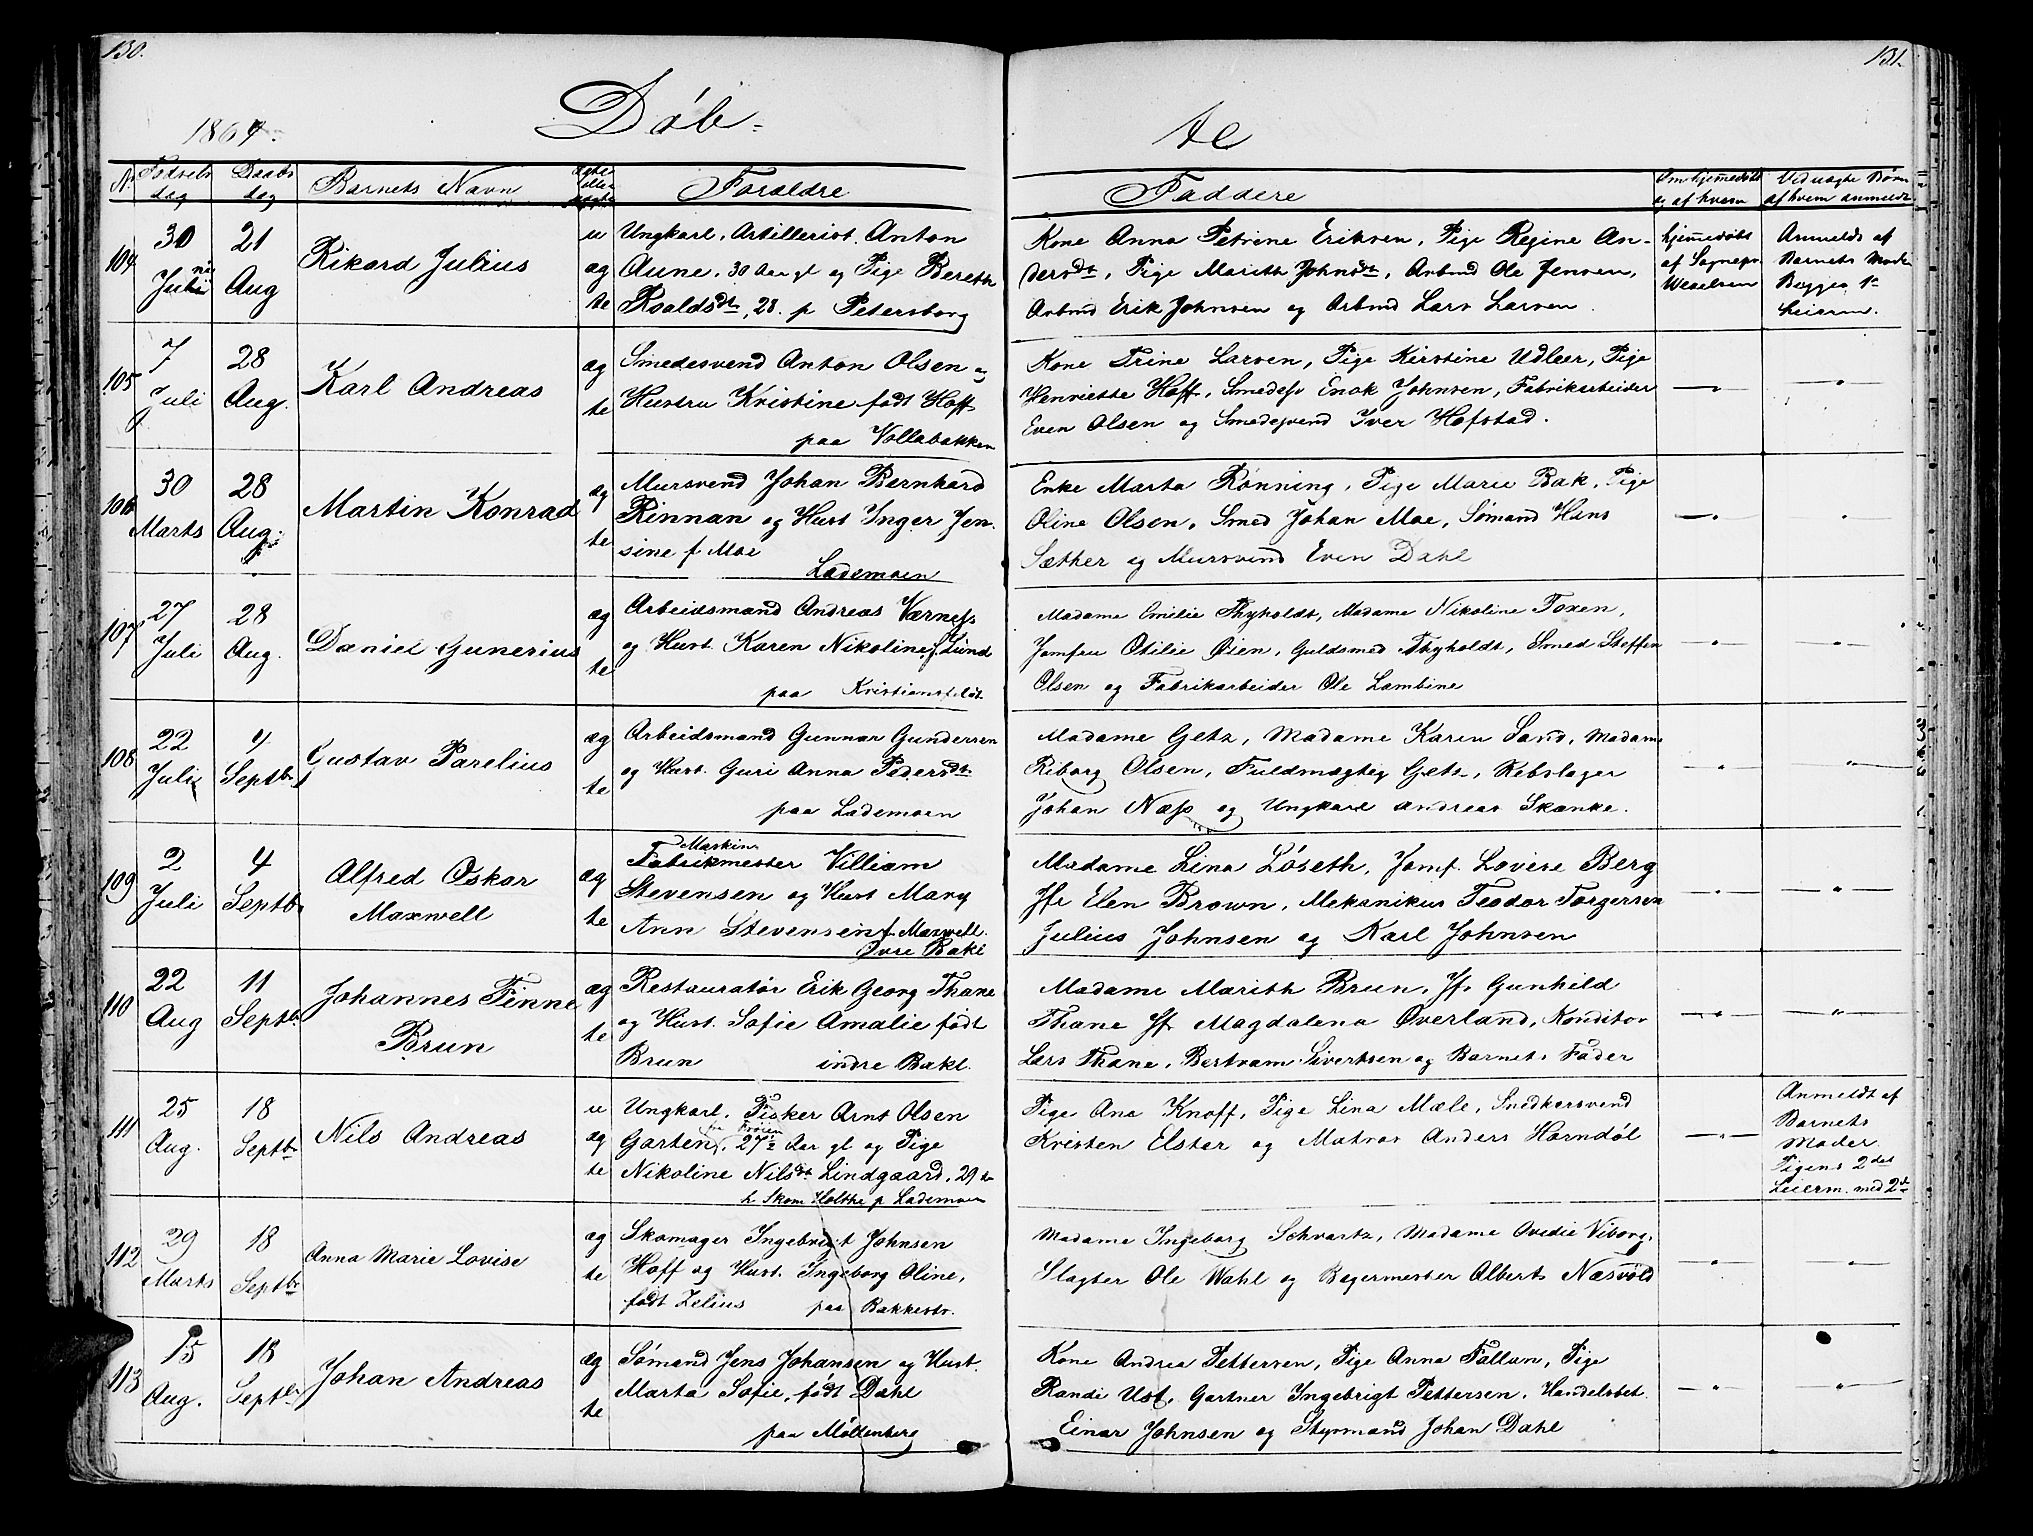 130.
131.
1864.
Døb-
te
Nr
Fødsels
dag
Daabs
dag
Barnets Navn
Forældre
Faddere
Om hjemmedøbt
og af hvem
Ved uægte Børn
af hvem anmeldt
104
30
Juni
21
Aug
Rikard Julius
u
æg
te
Ungkarl, Artillerist. Anton
Aune, 30 Aar gl og Pige Bereth
Roaldsdt, 28. p Petersborg
Kone Anna Petrine Eriksen, Pige Regine An-
dersdt, Pige Marith Johnsdt, Arbmd Ole Jensen,
Arbmd Erik Johnsen og Arbmd Lars Larsen
hjemmedøbt
af Sognepr.
Wexelsen
Anmeldt af
Barnets Moder
Begges 1ste
Leierm.
105
7
Juli
28
Aug.
Karl Andreas
æg
te
Smedesvend Anton Olsen og
Hustru Kristine født Hoff
paa Vollabakken
Kone Trine Larsen, Pige Kirstine Udleer, Pige
Henriette Hoff, Smedesv Enok Johnsen, Fabrikarbeider
Even Olsen og Smedesvend Iver Hofstad.
106
30
Marts
28
Aug.
Martin Konrad
æg
te
Mursvend Johan Bernhard
Rinnan og Hust Inger Jen-
sine f Moe
Lademoen
Enke Marta Rønning, Pige Marie Bak, Pige
Oline Olsen, Smed Johan Moe, Sømand Hans
Sæther og Mursvend Even Dahl
107
27
Juli
28
Aug.
Daniel Gunerius
æg
te
Arbeidsmand Andreas Værness
og Hust. Karen Nikoline f. Lund
paa Kristianst. Fæst.
Madame Emilie Thyholdt, Madame Nikoline Foxen,
Jomfru Otilie Øien, Guldsmed Thyholdt, Smed Steffen
Olsen og Fabrikarbeider Ole Lambine
108
22
Juli
4
Septbr
Gustav Parelius
æg
te
Arbeidsmand Gunnar Gundersen
og Hust. Guri Anna Pedersdt.
paa Lademoen
Madame Getz, Madame Karen Sand, Madame
Riborg Olsen, Fuldmægtig Getz, Rebslager
Johan Næss og Ungkarl Andreas Skanke.
109
2
Juli
4
Septbr
Alfred Oskar
Maxwell
æg
te
Maskin
Fabrikmester Villiam
Stevensen og Hust Mary
Ann Stevensen f. Maxwell.
Øvre Bakl
Madame Lina Løseth, Jomf. Lovise Berg
Jfr Elen Brown, Mekanikus Teodor Torgersen
Julius Johnsen og Karl Johnsen
110
22
Aug
11
Septbr
Johannes Finne
Brun
æg
te
Restauratør Erik Georg Thane
og Hust. Sofie Amalie født
Brun indre Bakl.
Madame Marith Brun, Jfr Gunhild
Thane Jfr Magdalena Overland, Konditor
Lars Thane, Bertram Sivertsen og Barnets Fader
111
25
Aug.
18
Septbr
Nils Andreas
u
æg
te
Ungkarl, Fisker Arnt Olsen
Garten, fra Frøien 27 Aar gl og Pige
Nikoline Nilsdt Lindgaard, 29 Aar
h Skom Holthe p Lademoen
Pige Ana Knoff, Pige Lina Mæle, Snedkersvend
Kristen Elster og Matros Anders Harndøl
Anmeldt af
Barnets
Moder.
Pigens 2det
Leierm. med 2d
112
29
Marts
18
Septbr
Anna Marie Lovise
æg
te
Skomager Ingebrigt Johnsen
Hoff og Hust. Ingeborg Oline,
født Zelius paa Bakkestr.
Madame Ingeborg Schvartz, Madame Ovidie Viborg,
Slagter Ole Wahl og Bagermester Albert Næsvold
113
15
Aug.
18
Septbr
Johan Andreas
æg
te
Sømand Jens Johansen og Hust.
Marta Sofie, født Dahl
paa Møllenberg
Kone Andrea Pettersen, Pige Anna Fallan, Pige
Randi Ust, Gartner Ingebrigt Pettersen, Handelsbet.
Einar Johnsen og Styrmand Johan Dahl